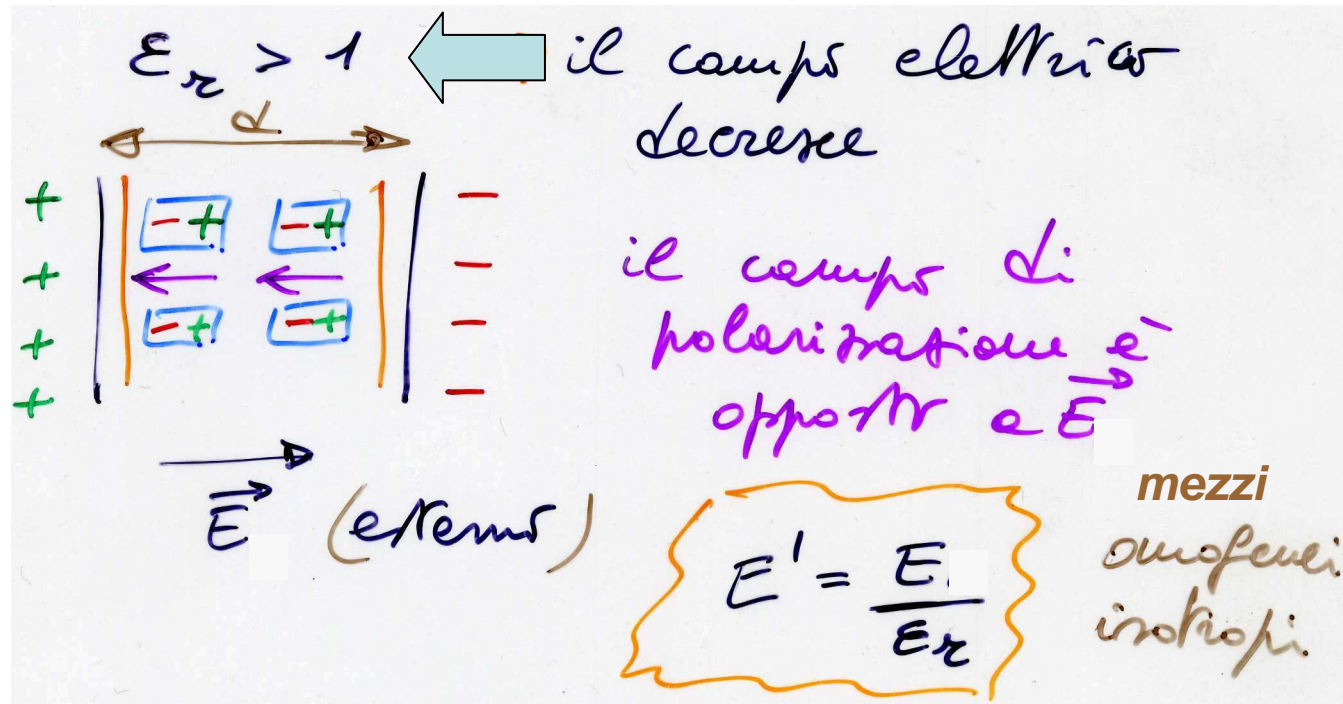 εr > 1
il campo elettrico
decresce
d
+ - + - + -
il campo di
+ -
polarizzazione è
+ - + - + -
opposto a E→
+ -
E→ (esterno)
E' = E / εr
mezzi
omogenei
isotropi